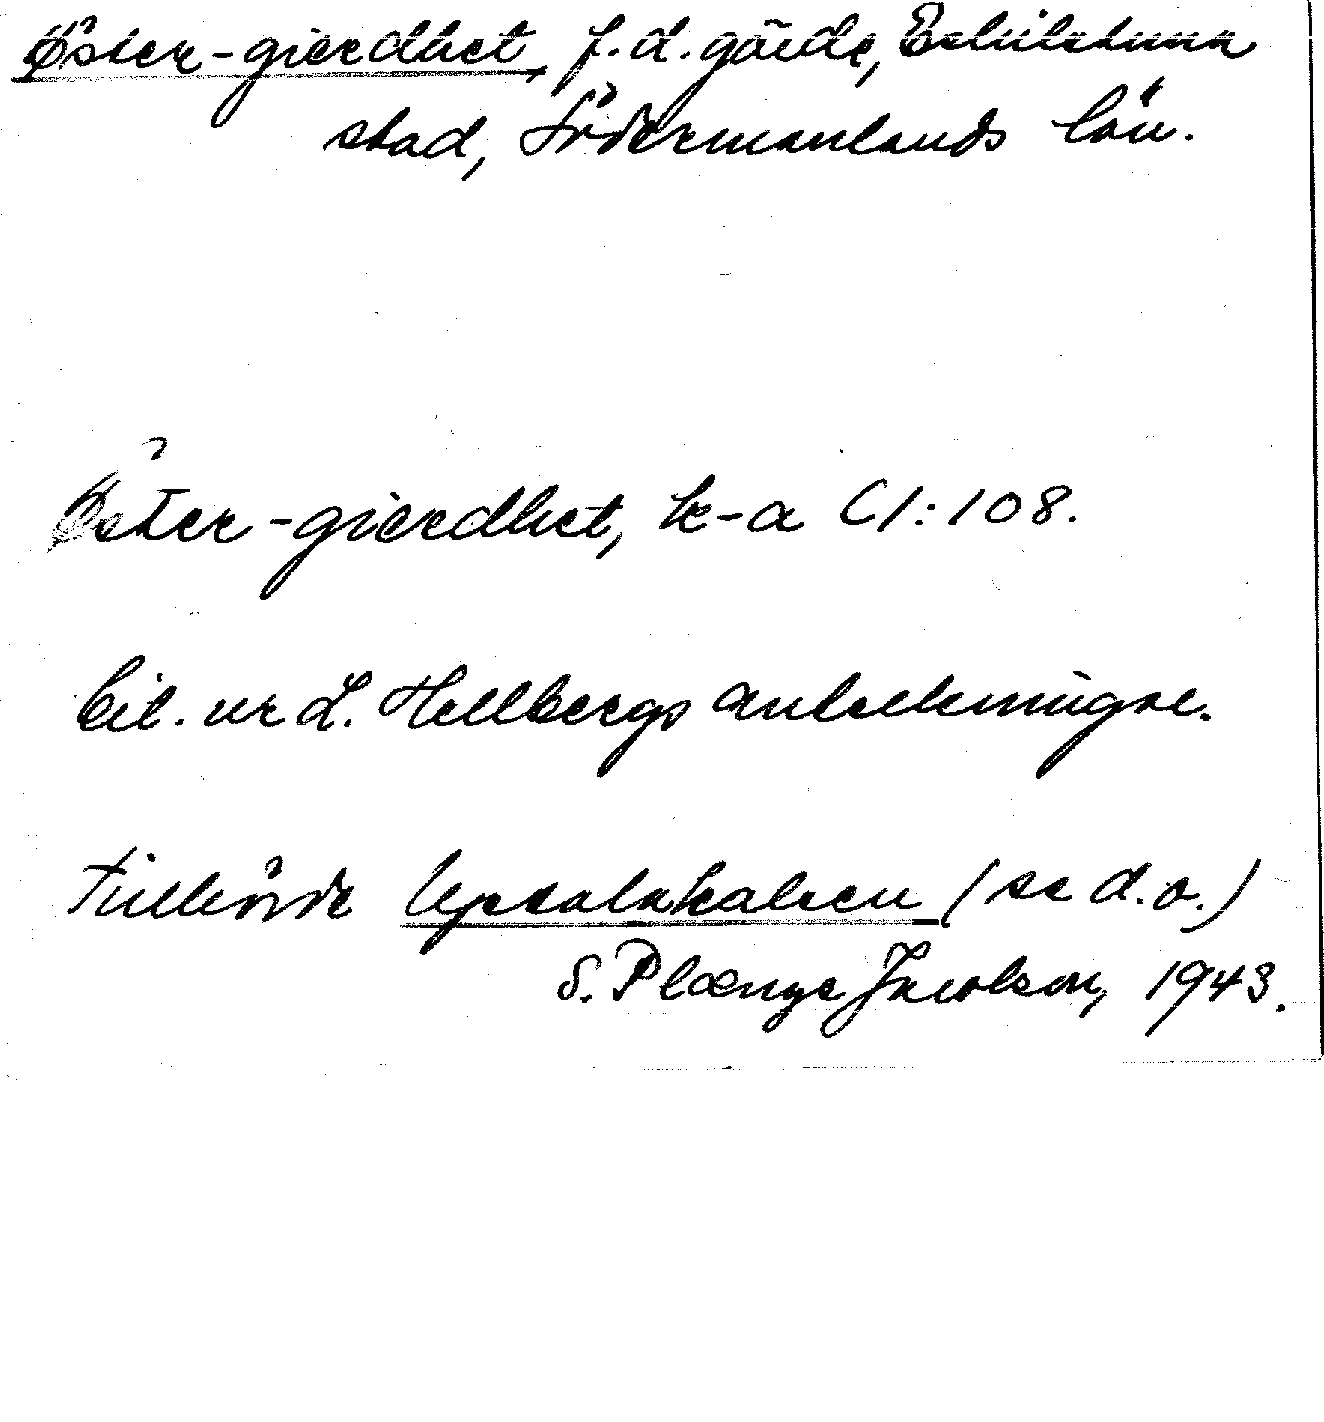 Öster-gierdhet, f.d. gärde, Eskilstuna
stad, Södermanlands län.
Öster-gierdhet, k-a C I:108.
Cit. ur L. Hellbergs anteckningar.
Tillhörde Upsalakalsen (se d.o.)
S. Plænge Jacobson, 1943.